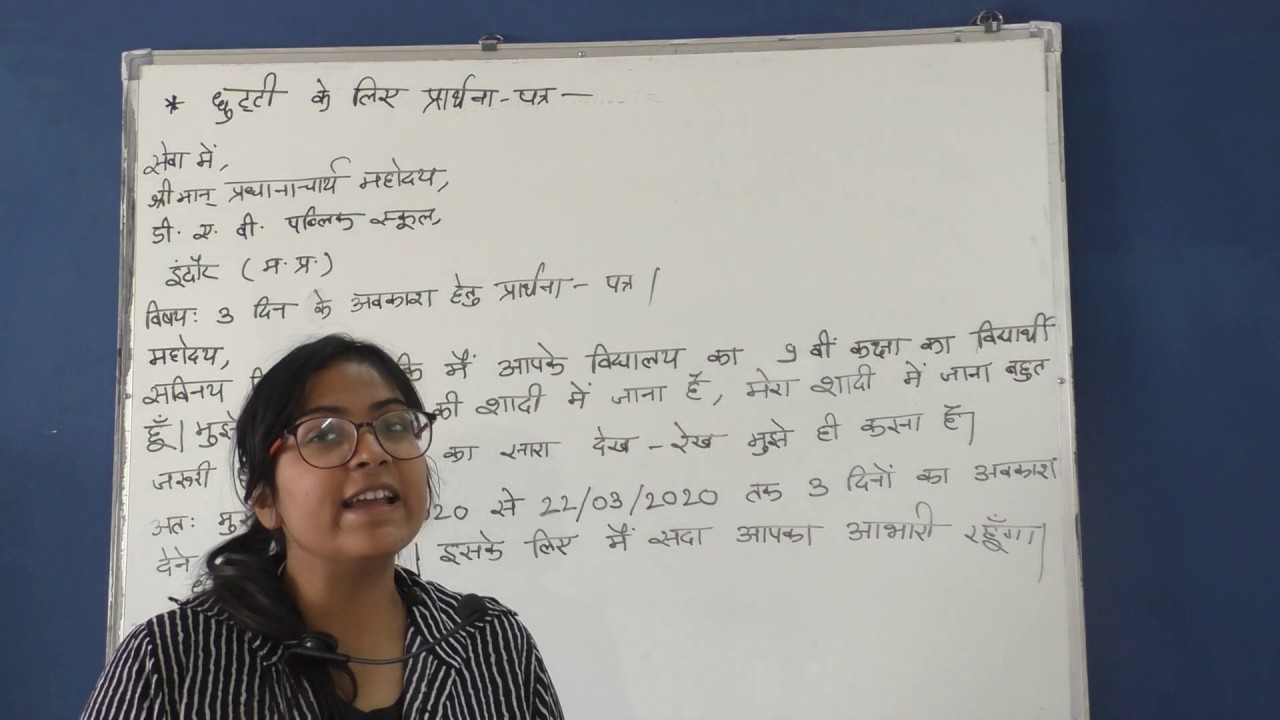 * छुट्टी के लिए प्रार्थना-पत्र —
सेवा में,
श्रीमान् प्रधानाचार्य महोदय,
डी. ए. वी. पब्लिक स्कूल,
इंदौर (म. प्र.)
विषय: 3 दिन के अवकाश हेतु प्रार्थना - पत्र |
महोदय,
सविनय कि मैं आपके विद्यालय का 9 वीं कक्षा का विद्यार्थी
हूँ| मुझे की शादी में जाना है, मेरा शादी में जाना बहुत
जरूरी का सारा देख - रेख मुझे ही करना है|
अतः 20 से 22/03/2020 तक 3 दिनों का अवकाश
देने | इसके लिए मैं सदा आपका आभारी रहूँगा|